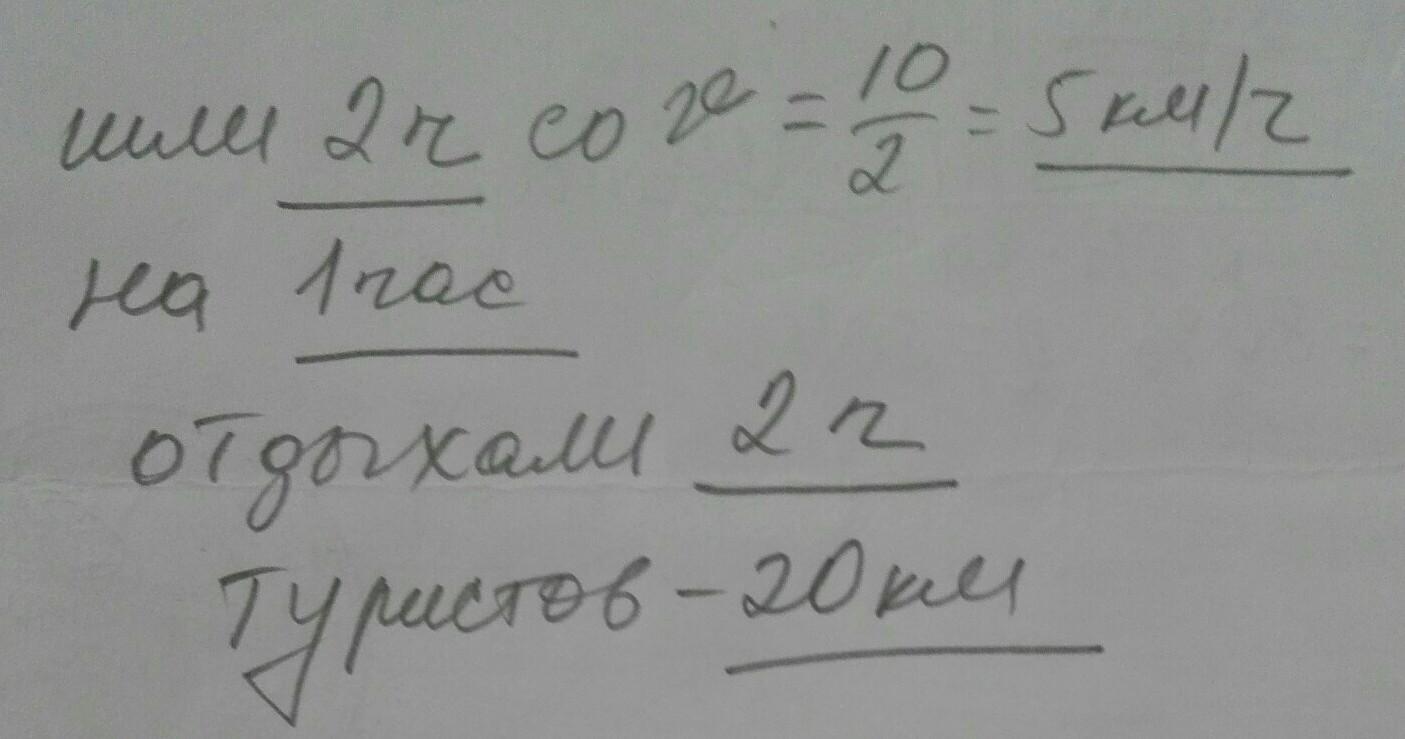 шли 2ч со v = 10/2 = 5 км/ч
на 1 час
отдыхали 2 ч
Туристов - 20 км